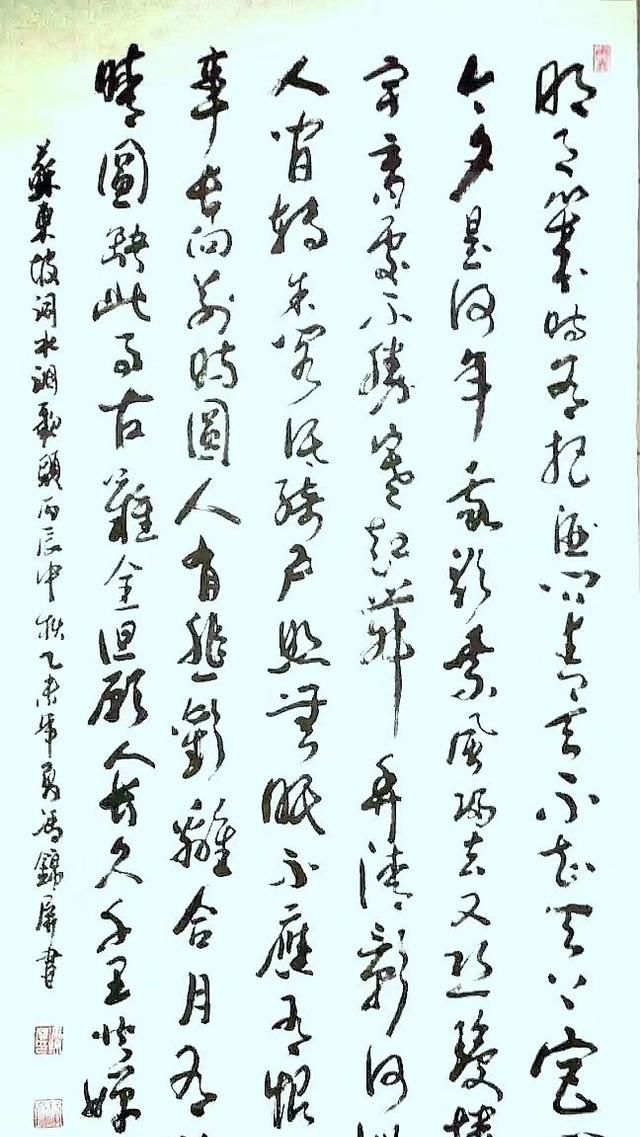 明月幾時有把酒問青天不知天上宮
今夕是何年我欲乘風歸去又恐瓊樓
宇高處不勝寒起舞弄清影何
人間轉朱閣低綺戶照無眠不應有恨
事長向別時圓人有悲歡離合月有
晴圓缺此事古難全但願人長久千里共嬋
蘇東坡詞水調歌頭丙辰中秋乙未年夏馮錦屏書